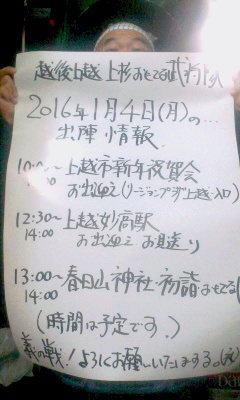 越後上越 上杉おもてなし武将隊
2016年1月4日(月)の…
出陣情報
10:00〜上越市新年祝賀会
お出迎え(リージョンプラザ上越・入口)
12:30〜上越妙高駅
14:00 お出迎えお見送り
13:00〜春日山神社・初詣おもてなし
14:00
(時間は予定です。)
義の戦!よろしくお願いいたしまする。